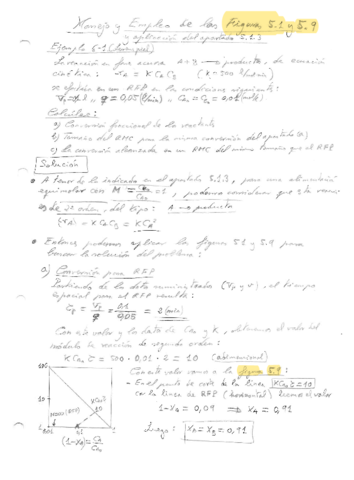 Manejo y Empleo de las Figuras 5.1 y 5.9
y aplicación del apartado 5.1.3
Ejemplo 5-1 (Levenspiel)
La reacción en fase acuosa A+B → productos, de ecuación
cinética: -rA = K CA CB (K = 500 l/mol·min)
se efectúa en un RFP en las condiciones siguientes:
VP = 0,1 l, q = 0,05 (l/min), CA0 = CB0 = 0,01 (mol/l)
Calcular:
a) Conversión fraccional de los reactantes
b) Tamaño del RMC para la misma conversión del apartado (a)
c) La conversión alcanzada en un RMC del mismo tamaño que el RFP
Solución
A tenor de lo indicado en el apartado 5.1.3, para una alimentación
equimolar con M = CB0/CA0 = 1, podemos considerar que la reacc.
es de 2º orden, del tipo: A → productos
(-rA) = K CA CB = K CA²
Entonces podremos aplicar las figuras 5.1 y 5.9 para
la resolución del problema:
a) Conversión para RFP
Partiendo de los datos suministrados (VP y q), el tiempo
espacial para el RFP resulta:
τP = VP/q = 0,1/0,05 = 2 (min)
Con este valor y los datos de CA0 y K, el valor del
módulo de reacción de segundo orden:
K CA0 τ = 500 · 0,01 · 2 = 10 (adimensional)
Con este valor vamos a la figura 5.9:
- En el punto de corte de la línea K CA0 τ = 10
con la línea de RFP (horizontal) leemos el valor
1-XA = 0,09 ⟹ XA = 0,91
Luego: XA = XB = 0,91
100
10
1
0.01
0.1
1
(1-XA) = CA/CA0